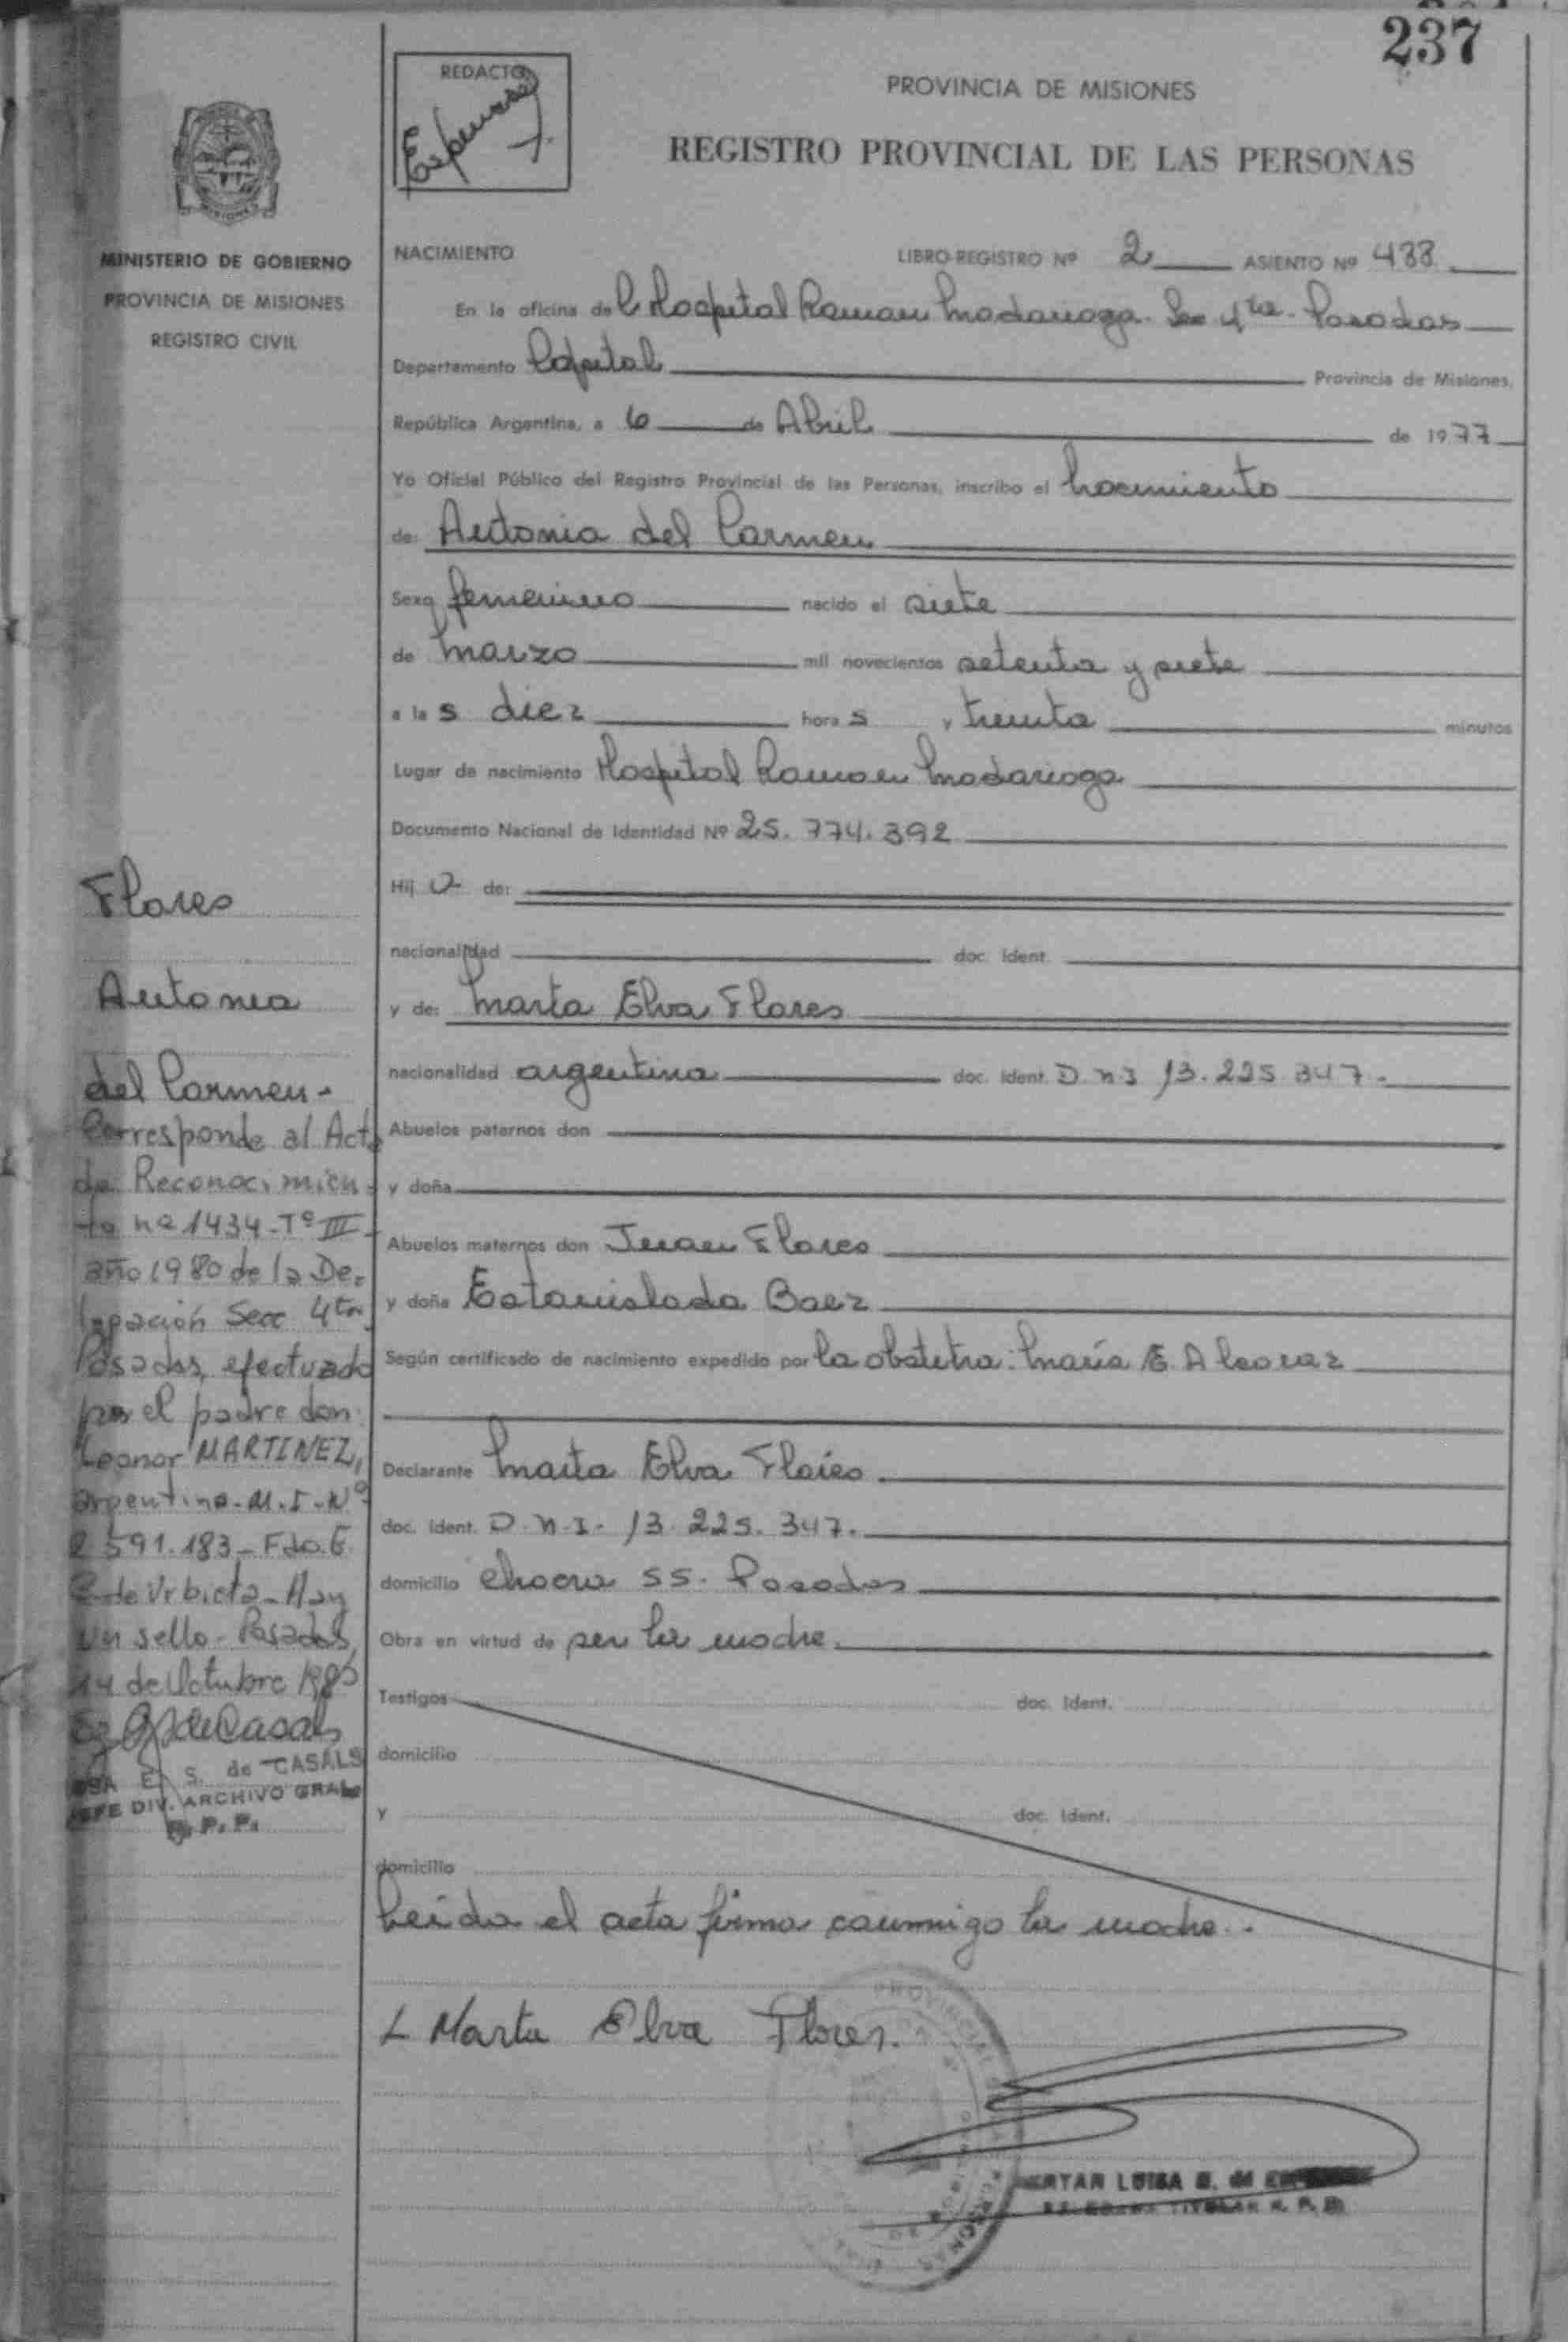 237
REDACTO
PROVINCIA DE MISIONES
REGISTRO PROVINCIAL DE LAS PERSONAS
MINISTERIO DE GOBIERNO
PROVINCIA DE MISIONES
REGISTRO CIVIL
NACIMIENTO LIBRO-REGISTRO Nº 2 ASIENTO Nº 433
En la oficina de Hospital Ramon Madariaga. Sec 4ta. Posadas
Departamento Capital Provincia de Misiones,
República Argentina, a 6 de Abril de 1977
Yo Oficial Público del Registro Provincial de las Personas, inscribo el Nacimiento
de: Antonia del Carmen
Sexo femenino nacido el siete
de Marzo mil novecientos setenta y siete
a las diez horas y treinta minutos
Lugar de nacimiento Hospital Ramon Madariaga
Documento Nacional de Identidad Nº 25.774.392
Hija de:
nacionalidad doc. Ident.
y de: Marta Elva Flores
nacionalidad argentina doc. Ident. D.N.I 13.225.347.-
Abuelos paternos don
y doña
Abuelos maternos don Juan Flores
y doña Estanislada Baez
Según certificado de nacimiento expedido por la obstetra: María E. Alcaraz
Declarante Marta Elva Flores.
doc. Ident. D.N.I. 13.225.347.
domicilio Chacra 55. Posadas
Obra en virtud de ser la madre.
Testigos doc. Ident.
domicilio
y doc. Ident.
domicilio
Leida el acta firma conmigo la madre..
Marta Elva Flores.
Flores
Antonia
del Carmen-
Corresponde al Acta
de Reconocimien-
to nº 1434-Tº III-
año 1980 de la De-
legación Secc 4ta
Posadas, efectuado
por el padre don:
Leonor MARTINEZ,
argentino-M.I-Nº
2.591.183-Fdo.E.
de Urbieta-Hay
un sello-Posadas
14 de Octubre 1985
E. S. de CASALS
JEFE DIV. ARCHIVO GRAL
R. P. P.
LUISA
TITULAR R. P. P.